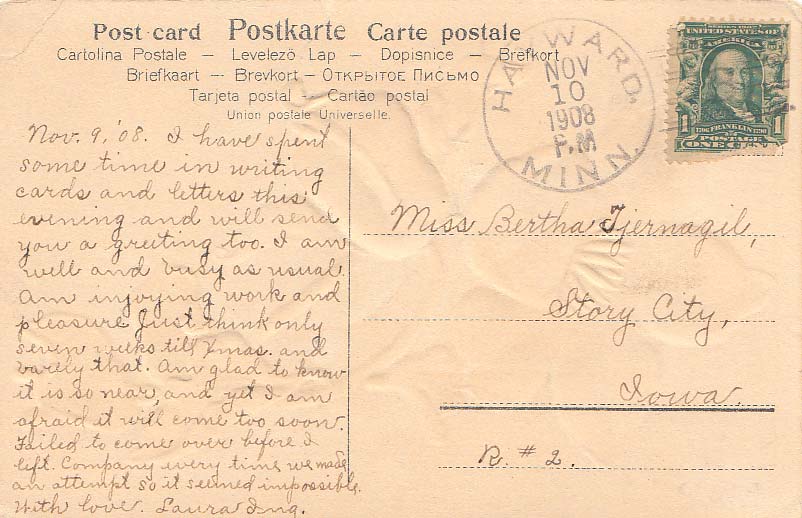 Post card Postkarte Carte postale
Cartolina Postale — Levelező Lap — Dopisnice — Brefkort
Briefkaart — Brevkort — Открытое Письмо
Tarjeta postal — Cartão postal
Union postale Universelle.
HAYWARD, MINN.
NOV
10
1908
P.M
SERIES 1902
UNITED STATES OF
AMERICA
1706 FRANKLIN 1790
1
POSTAGE
ONE CENT
Nov. 9, '08. I have spent
some time in writing
cards and letters this
evening and will send
you a greeting too. I am
well and busy as usual.
Am injoying work and
pleasure. Just think only
seven weeks till Xmas. and
barely that. Am glad to know
it is so near, and yet I am
afraid it will come too soon.
Failed to come over before I
left. Company every time we made
an attempt so it seemed impossible.
With love. Laura Ing.
Miss Bertha Tjernagil,
Story City,
Iowa.
R. # 2.